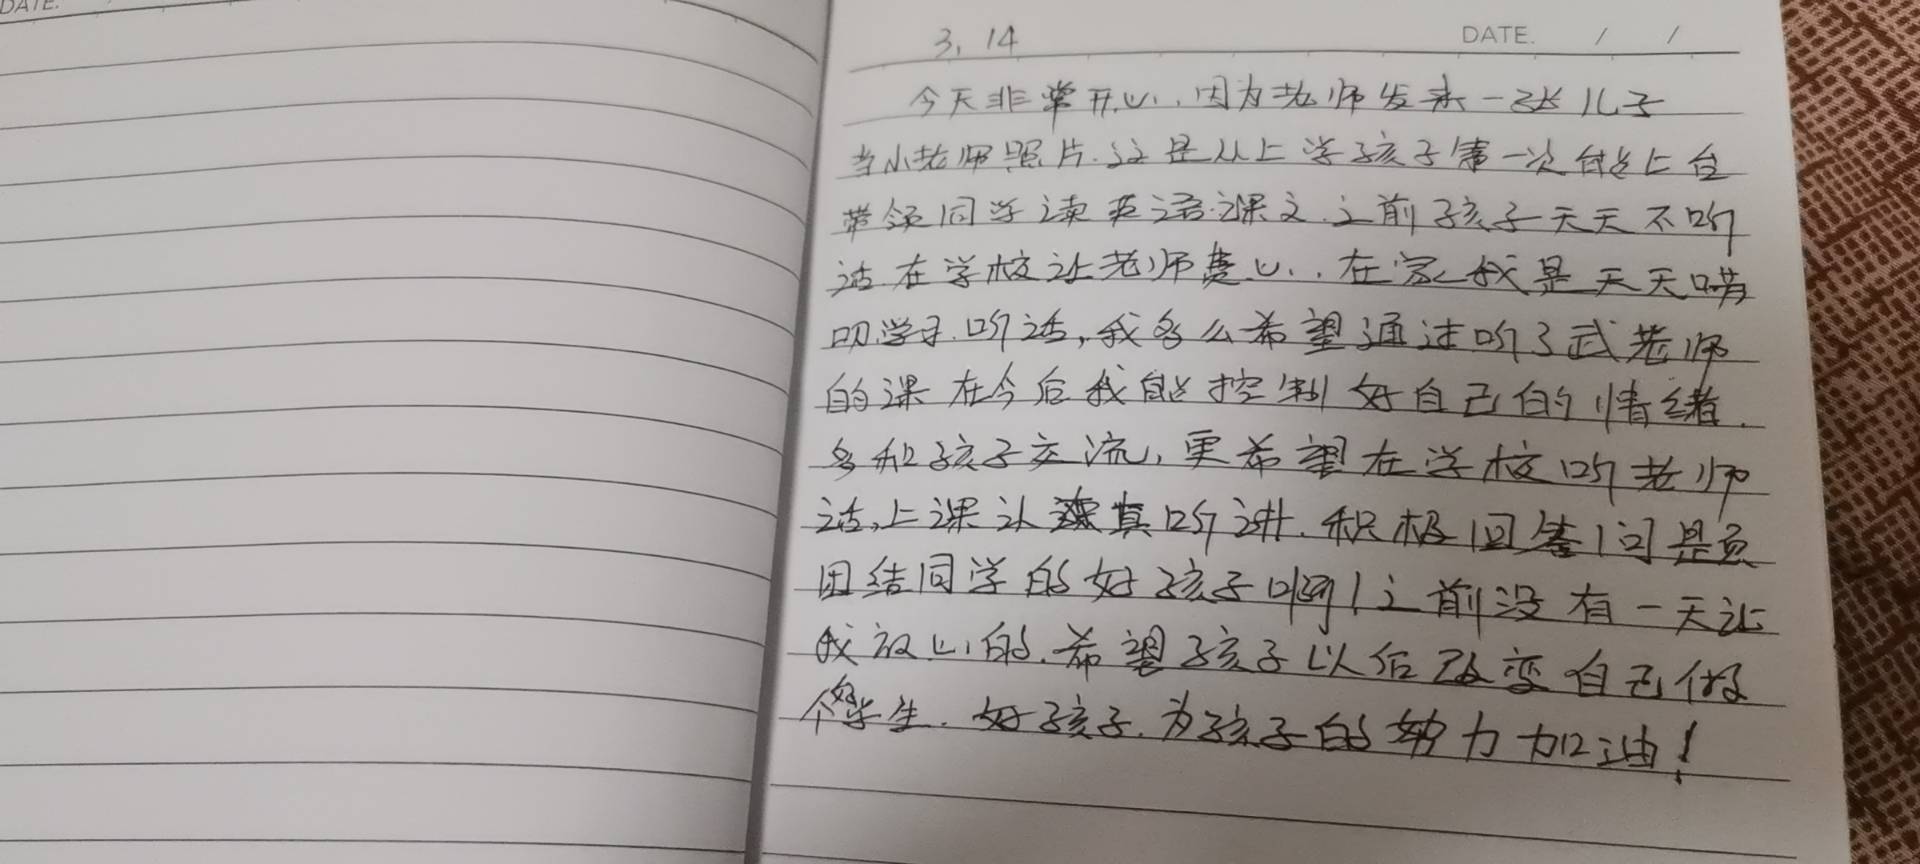 DATE.
3, 14
DATE. / /
今天非常开心,因为老师发来一张儿子
当小老师照片.这是从上学孩子第一次能上台
带领同学读英语课文.之前孩子天天不听
话.在学校让老师费心..在家我是天天唠
叨学习.听话,我多么希望通过听了武老师
的课在今后我能控制好自己的情绪.
多和孩子交流,更希望在学校听老师
话,上课认真听讲.积极回答问是页
团结同学的好孩子啊!之前没有一天让
我放心的.希望孩子以后改变自己做
个好学生.好孩子.为孩子的努力加油!